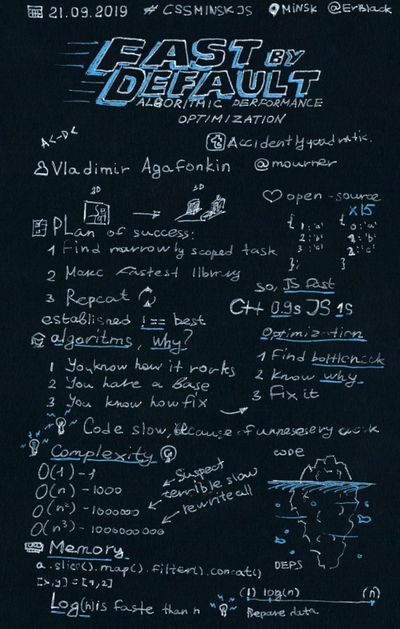 21.09.2019 # CSSMINSKJS Minsk @ErBlack
FAST BY
DEFAULT
ALGORITHMIC PERFORMANCE
OPTIMIZATION
Accidently quadratic.
Vladimir Agafonkin @mourner
2D → 3D
open-source
x15
PLan of success:
1 Find narrowly scoped task
2 Make Fastest library
3 Repeat
established !== best
{ 1:'a' 2:'b' 3:'c' };
{ 0:'a' 1:'b' 2:'c' }
So, JS fast
C++ 0.9s JS 1s
algoritms, why?
1 You know how it works
2 You have a Base
3 You know how fix
Optimization
1 Find bottleneck
2 Know why
3 Fix it
Code slow, because of unnessesery work
Complexity
O(1) - 1
O(n) - 1000
O(n²) - 1000000
O(n³) - 1000000000
Suspect
terrible slow
rewrite all
CODE
DEPS
Memory
a.slice().map().filter().concat()
[x,y] = [1,2]
Log(n) is faste than n
(1) log(n) (n)
Prepare data